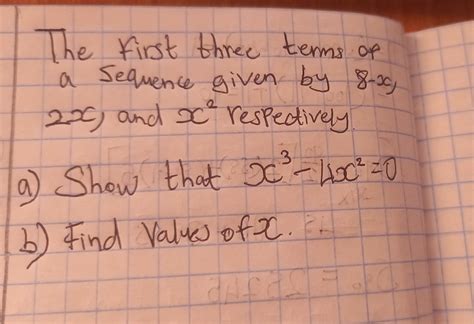 The first three terms of
a sequence given by 8-x,
2x, and x² respectively.
a) Show that x³ - 4x² = 0
b) Find Values of x.